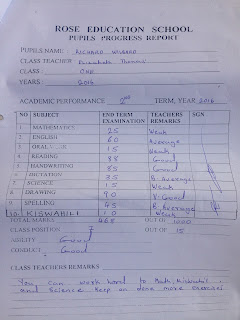 ROSE EDUCATION SCHOOL
PUPILS PROGRESS REPORT
PUPILS NAME : RICHARD
CLASS TEACHER
CLASS : ONE
YEARS : 2016
ACADEMIC PERFORMANCE 2ND TERM, YEAR 2016
NO SUBJECT END TERM EXAMINATION TEACHERS REMARKS SGN
1 MATHEMATICS 25 Weak
2 ENGLISH 60 Average
3 ORAL 15 Weak
4 READING 88 Good
5 HANDWRITING 85 Good
6 DICTATION 35 B. Average
7 SCIENCE 15 Weak
8 DRAWING 90 V. Good
9 SPELLING 45 B. Average
10 KISWAHILI 10 Weak
TOTAL MARKS 468 OUT OF 1000
CLASS POSITION OUT OF 15
ABILITY Good
CONDUCT Good
CLASS TEACHERS REMARKS
You can work hard to Math, Kiswahili,
and Science. Keep on done more exercise.